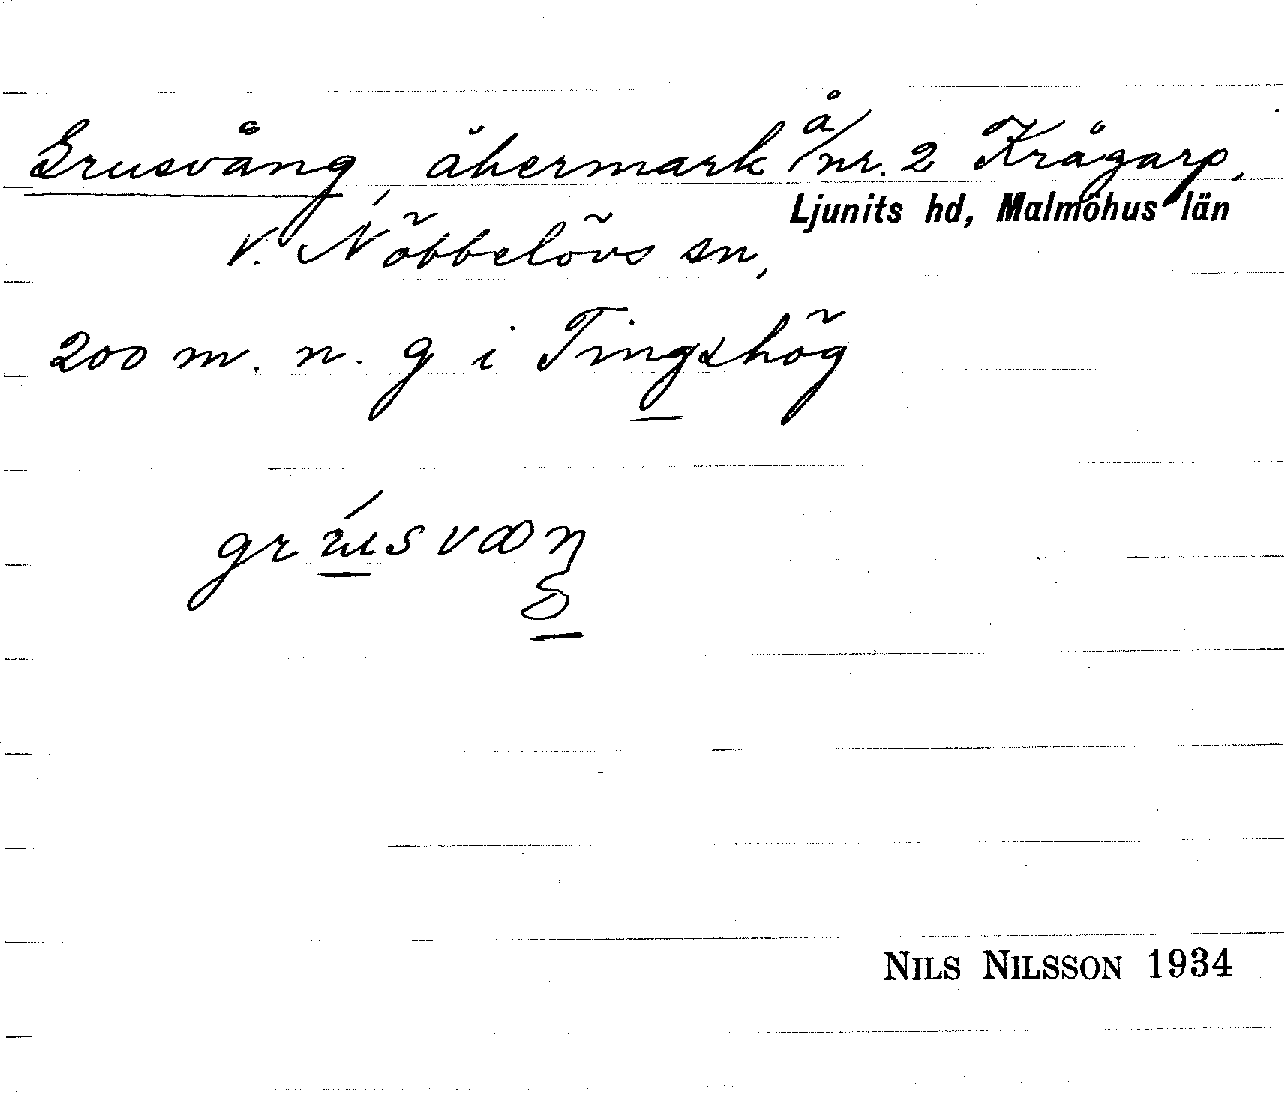 Grusvång, åkermark å/nr. 2 Krågarp,
Ljunits hd, Malmöhus län
V. Nöbbelövs sn,
200 m. n. g i Tingshög
NILS NILSSON 1934